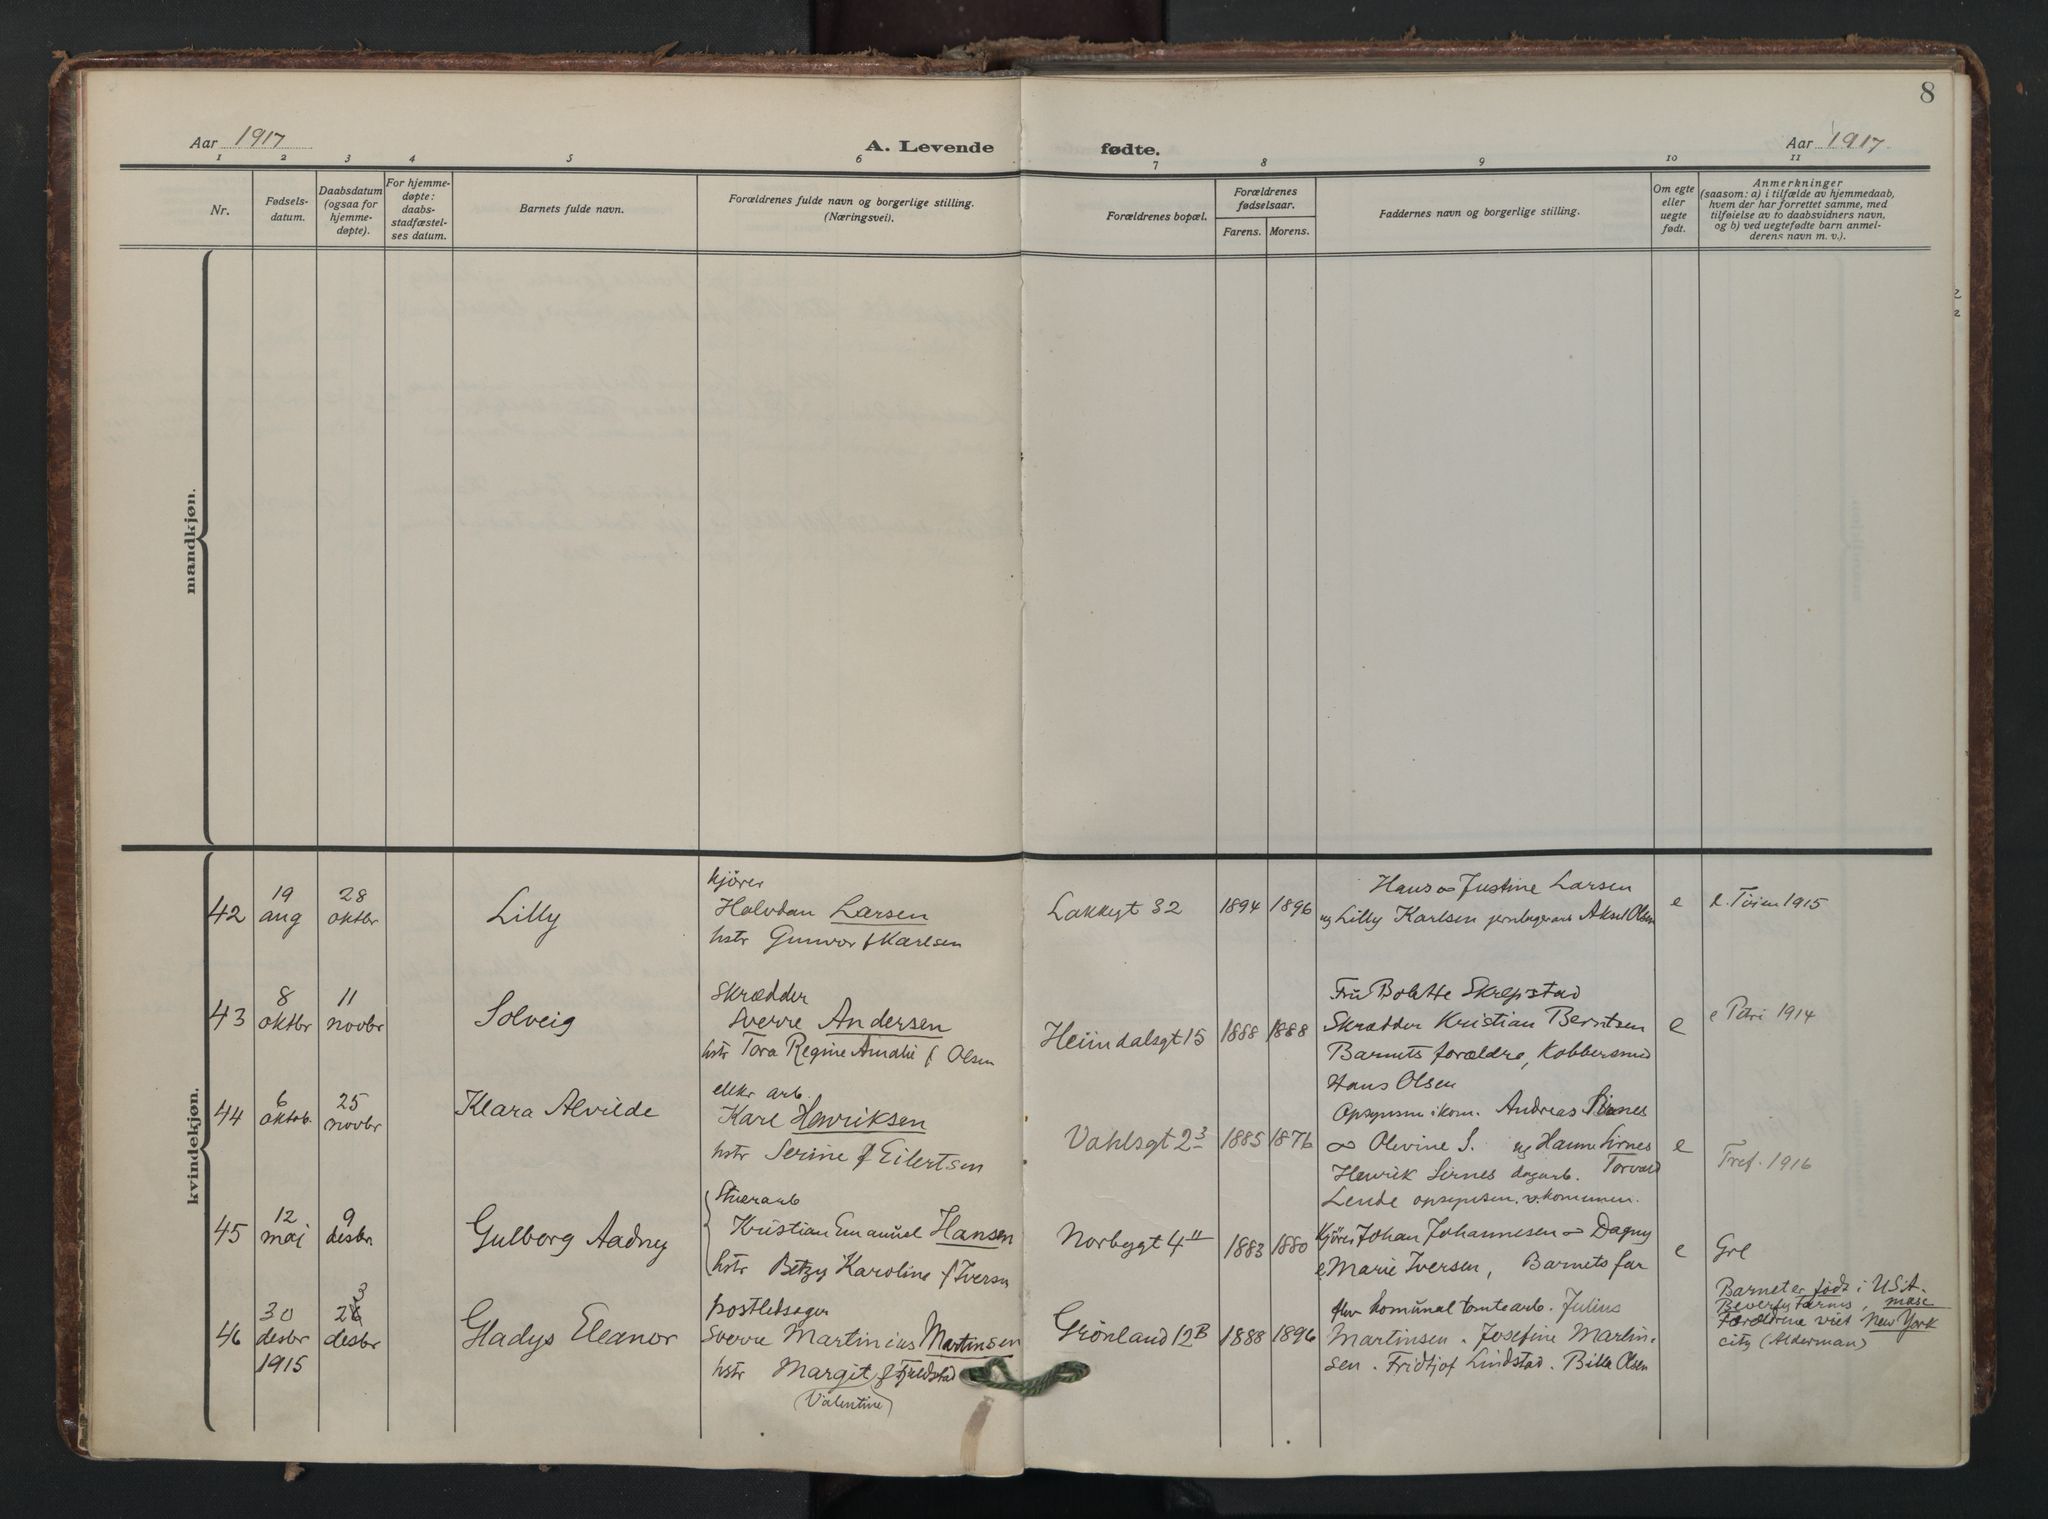 8
Aar 1917
A. Levende
fødte.
Aar 1917.
1 2 3 4 5 6 7 8 9 10 11
Nr.
Fødsels-
datum.
Daabsdatum
(ogsaa for
hjemme-
døpte).
For hjemme-
døpte:
daabs-
stadfæstel-
ses datum.
Barnets fulde navn.
Forældrenes fulde navn og borgerlige stilling.
(Næringsvei).
Forældrenes bopæl.
Forældrenes
fødselsaar.
Farens. Morens.
Faddernes navn og borgerlige stilling.
Om egte
eller
uegte
født.
Anmerkninger
(saasom: a) i tilfælde av hjemmedaab,
hvem der har forrettet samme, med
tilføielse av to daabsvidners navn,
og b) ved uegtefødte barn anmel-
derens navn m. v.).
mandkjøn.
kvindekjøn.
42
19
aug
28
oktbr
Lilly
kjører
Halvdan Larsen
hstr Gunvor f Karlsen
Lakkegt 32
1894 1896
Hans ∞ Justine Larsen
og Lilly Karlsen Aksel Olsen
e
e. Tøien 1915
43
8
oktbr
11
novbr
Solveig
Skrædder
Sverre Andersen
hstr Tora Regine Amalie f Olsen
Heimdalsgt 15
1888 1888
Fru Bolette Skrepstad
Skrædder Kristian Berntsen
Barnets forældre, Kobbersmed
Hans Olsen
e
e Petri 1914
44
6
oktob.
25
novbr
Klara Alvilde
elekr arb.
Karl Henriksen
hstr Serine f Eilertsen
Vahlsgt 2 3
1885 1876
Opsynsm i kom. Andreas Sirnes
∞ Olevine S. og Hanna Sirnes
Henrik Sirnes dagarb. Torvald
Lende opsynsm. v. kommunen.
e
Tref. 1916
45
12
mai
9
desbr
Gulborg Aadney
Stuerarb
Kristian Emanuel Hansen
hstr Betzy Karoline f Iversen
Norbygt 4 II
1883 1880
Kjører Johan Johannesen ∞ Dagny
Marie Iversen, Barnets far
e
Grl
46
30
desbr
1915
26 3
desbr
Gladys Eleanor
postledsager
Sverre Martinius Martinsen
hstr Margit f Fjeldstad
(Valentine)
Grønland 12B
1888 1896
Julius
Martinsen. Josefine Martin-
sen. Fridtjof Lindstad. Billa Olsen
Barnet er født i U.S.A.
masc
Forældrene viet New York
city (Alderman)